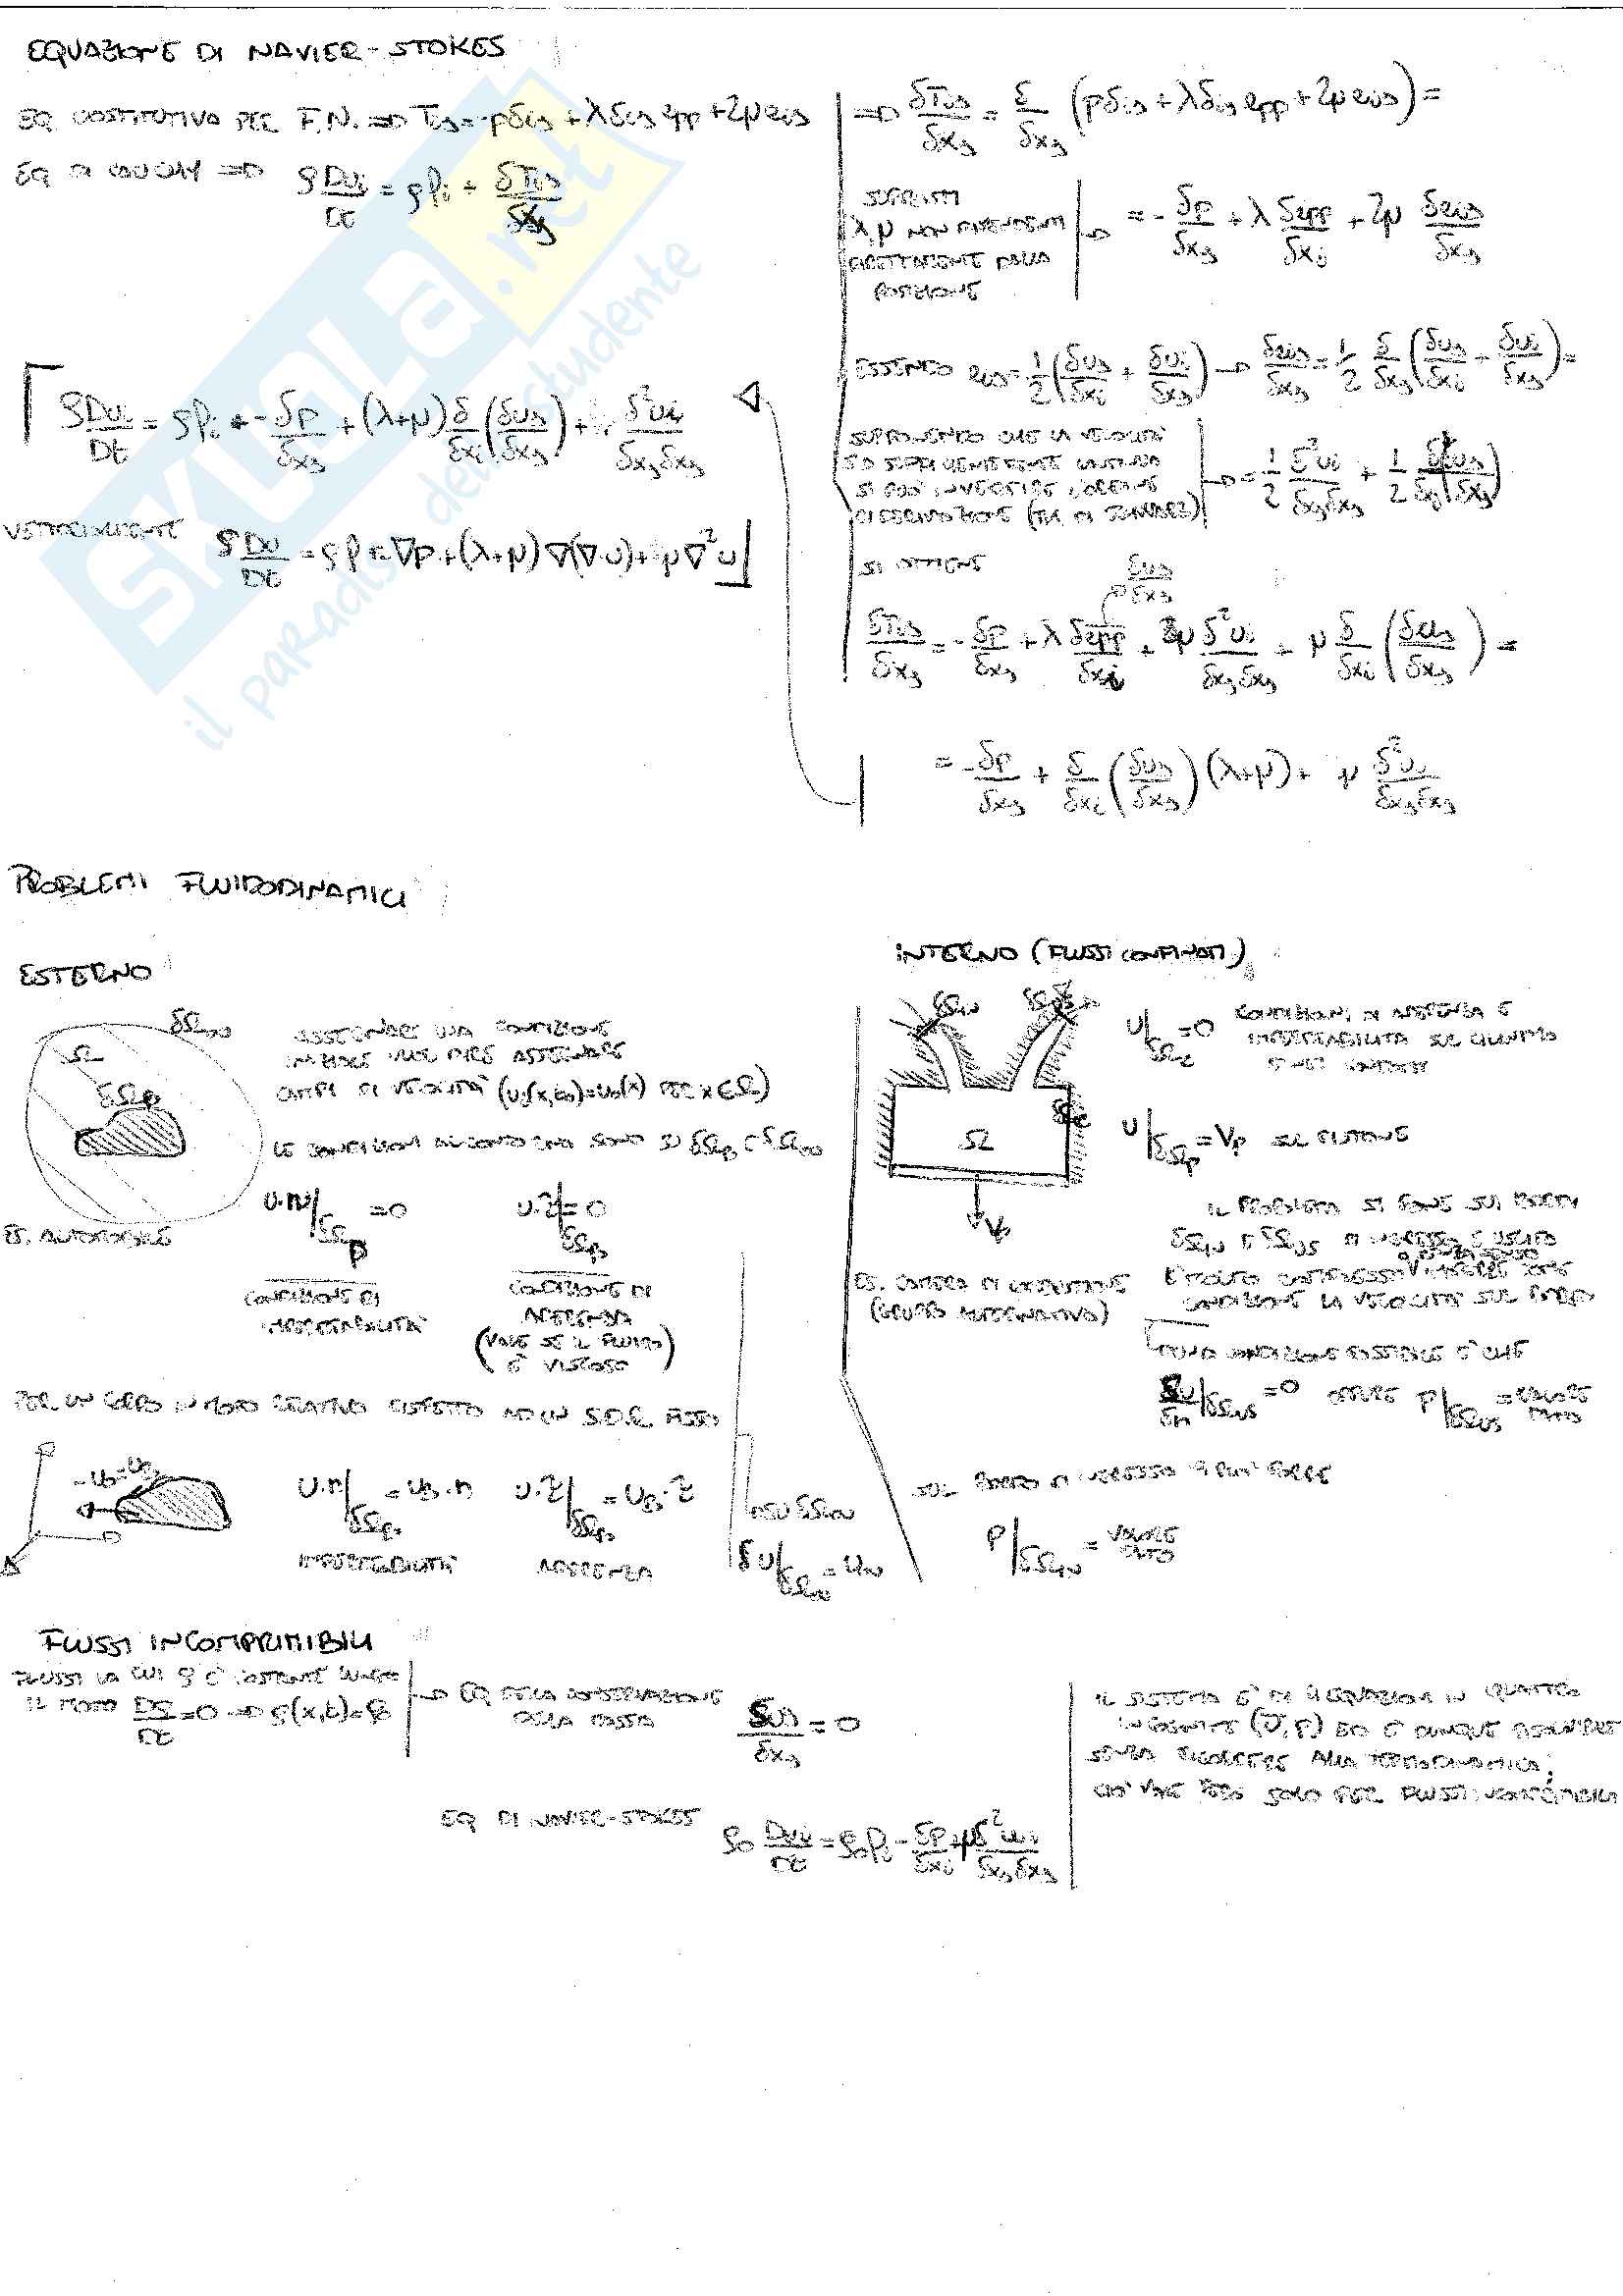 EQUAZIONE DI NAVIER-STOKES
EQ COSTITUTIVA PER F.N. => Tij = -pδij + λδij epp + 2μ eij
EQ DI CAUCHY => ρ Dui/Dt = ρfi + δTij/δxj
=> δTij/δxj = δ/δxj (pδij + λδij epp + 2μeij) =
SUPPOSTI
λ, μ NON DIPENDENTI
DIRETTAMENTE DALLA
POSIZIONE
= - δp/δxj + λ δepp/δxi + 2μ δeij/δxj
ESSENDO eij = 1/2 (δuj/δxi + δui/δxj) → δeij/δxj = 1/2 δ/δxj (δuj/δxi + δui/δxj) =
SUPPONENDO CHE LA VELOCITÀ
SI PUÒ INVERTIRE L'ORDINE
DI DERIVAZIONE (TH. DI SCHWARZ)
→ = 1/2 δ²ui/δxjδxj + 1/2 δ/δxi (δuj/δxj)
SI OTTIENE
δuj/δxj
δTij/δxj = - δp/δxj + λ δepp/δxi + μ δ²ui/δxjδxj + μ δ/δxi (δuj/δxj) =
= - δp/δxj + δ/δxi (δuj/δxj) (λ+μ) + μ δ²ui/δxjδxj
ρ Dui/Dt = ρfi + - δp/δxj + (λ+μ) δ/δxi (δuj/δxj) + δ²ui/δxjδxj
VETTORIALMENTE ρ Du/Dt = ρf - ∇p + (λ+μ)∇(∇·u) + μ∇²u
PROBLEMI FLUIDODINAMICI
ESTERNO
δΩ∞
Ω
δΩp
ES. AUTOMOBILE
ASSEGNARE UNA CONDIZIONE
INIZIALE VUOL DIRE ASSEGNARE
CAMPI DI VELOCITÀ (u(x,t0)=u0(x) PER x∈Ω)
LE CONDIZIONI AL CONTORNO SONO SU δΩp E δΩ∞
u·n|δΩp = 0
CONDIZIONE DI
IMPERMEABILITÀ
u·τ|δΩp = 0
CONDIZIONE DI
ADERENZA
(VALE SE IL FLUIDO
È VISCOSO)
PER UN CORPO IN MOTO RELATIVO RISPETTO AD UN S.D.R. FISSO
u·n|δΩp = uB·n
IMPERMEABILITÀ
u·τ|δΩp = uB·τ
ADERENZA
SU δΩ∞
u|δΩ∞ = u∞
INTERNO (FLUSSI CONFINATI)
δΩIN
δΩUS
δΩc
Ω
Vp
ES. CAMERA DI COMBUSTIONE
(GRUPPO ALTERNATIVO)
u|δΩc = 0 CONDIZIONI DI ADERENZA E
IMPERMEABILITÀ SUL CILINDRO
E NEI CONDOTTI
u|δΩp = Vp SUL PISTONE
IL PROBLEMA SI PONE SUI BORDI
δΩIN E δΩUS DI INGRESSO E USCITA
È MOLTO COMPLESSO IMPORRE COME
CONDIZIONE LA VELOCITÀ SUL BORDO
UNA CONDIZIONE POSSIBILE È CHE
δu/δn|δΩUS = 0 OPPURE p|δΩUS = VALORE DATO
SUL BORDO DI INGRESSO SI PUÒ PORRE
p|δΩIN = VALORE DATO
FLUSSI INCOMPRIMIBILI
FLUSSI LA CUI ρ È COSTANTE LUNGO
IL MOTO Dρ/Dt = 0 => ρ(x,t) = ρ0
→ EQ DELLA CONSERVAZIONE
DELLA MASSA δuj/δxj = 0
EQ DI NAVIER-STOKES ρ0 Dui/Dt = ρ0fi - δp/δxi + μ δ²ui/δxjδxj
IL SISTEMA È DI 4 EQUAZIONI IN QUATTRO
INCOGNITE (u, p) ED È DUNQUE RISOLVIBILE
SENZA RICORRERE ALLA TERMODINAMICA;
CIÒ VALE PERÒ SOLO PER FLUSSI INCOMPRIMIBILI
SKUOLA.net
il paradiso dello studente